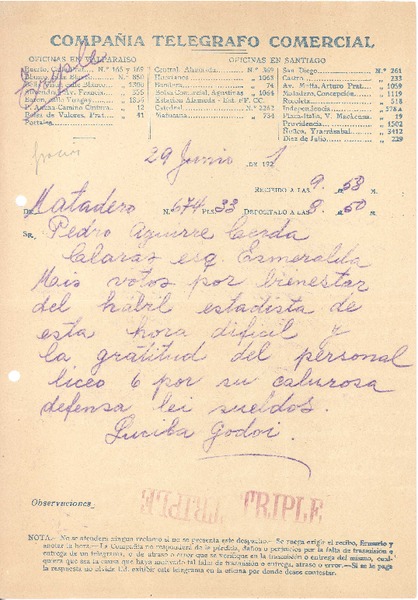 COMPAÑIA TELEGRAFO COMERCIAL
OFICINAS EN VALPARAISO
OFICINAS EN SANTIAGO
Central, Alameda, N.º 369
Huérfanos » 1063
Bandera » 74
Bolsa Comercial, Agustinas » 1064
Estación Alameda - Ent. FF. CC.
Catedral N.º 2262
Matucana » 734
San Diego N.º 261
Castro » 233
Av. Matta, Arturo Prat » 1059
Matadero, Concepción » 1119
Recoleta » 518
Independencia » 379A
Providencia » 1502
Diez de Julio » 229
29 Junio 1
RECIBIDO A LAS 9 58 M.
DE Matadero N.º 674 PLS 33 DEPOSITADO A LAS 9 50 M.
SR. Pedro Aguirre Cerda
Claras esq Esmeralda
Mais votos por bienestar
del hábil estadista de
esta hora dificil y
la gratitud del personal
liceo 6 por su calurosa
defensa lei sueldos.
Luciba Godoi.
TRIPLE TRIPLE
Observaciones
NOTA.- No se atenderá ningún reclamo si no se presenta este despacho.- Se ruega exigir el recibo, firmarlo y
anotar la hora.- La Compañía no responderá de la pérdida, daños o perjuicios por la falta de trasmisión o
entrega de un telegrama, o de atraso o error que se verifique en la trasmisión o entrega del mismo, cual-
quiera que sea la causa que haya motivado tal falta de trasmisión o entrega, atraso o error.- Si se le paga
la respuesta no olvide Ud. exhibir este telegrama en la oficina por donde desee contestar.